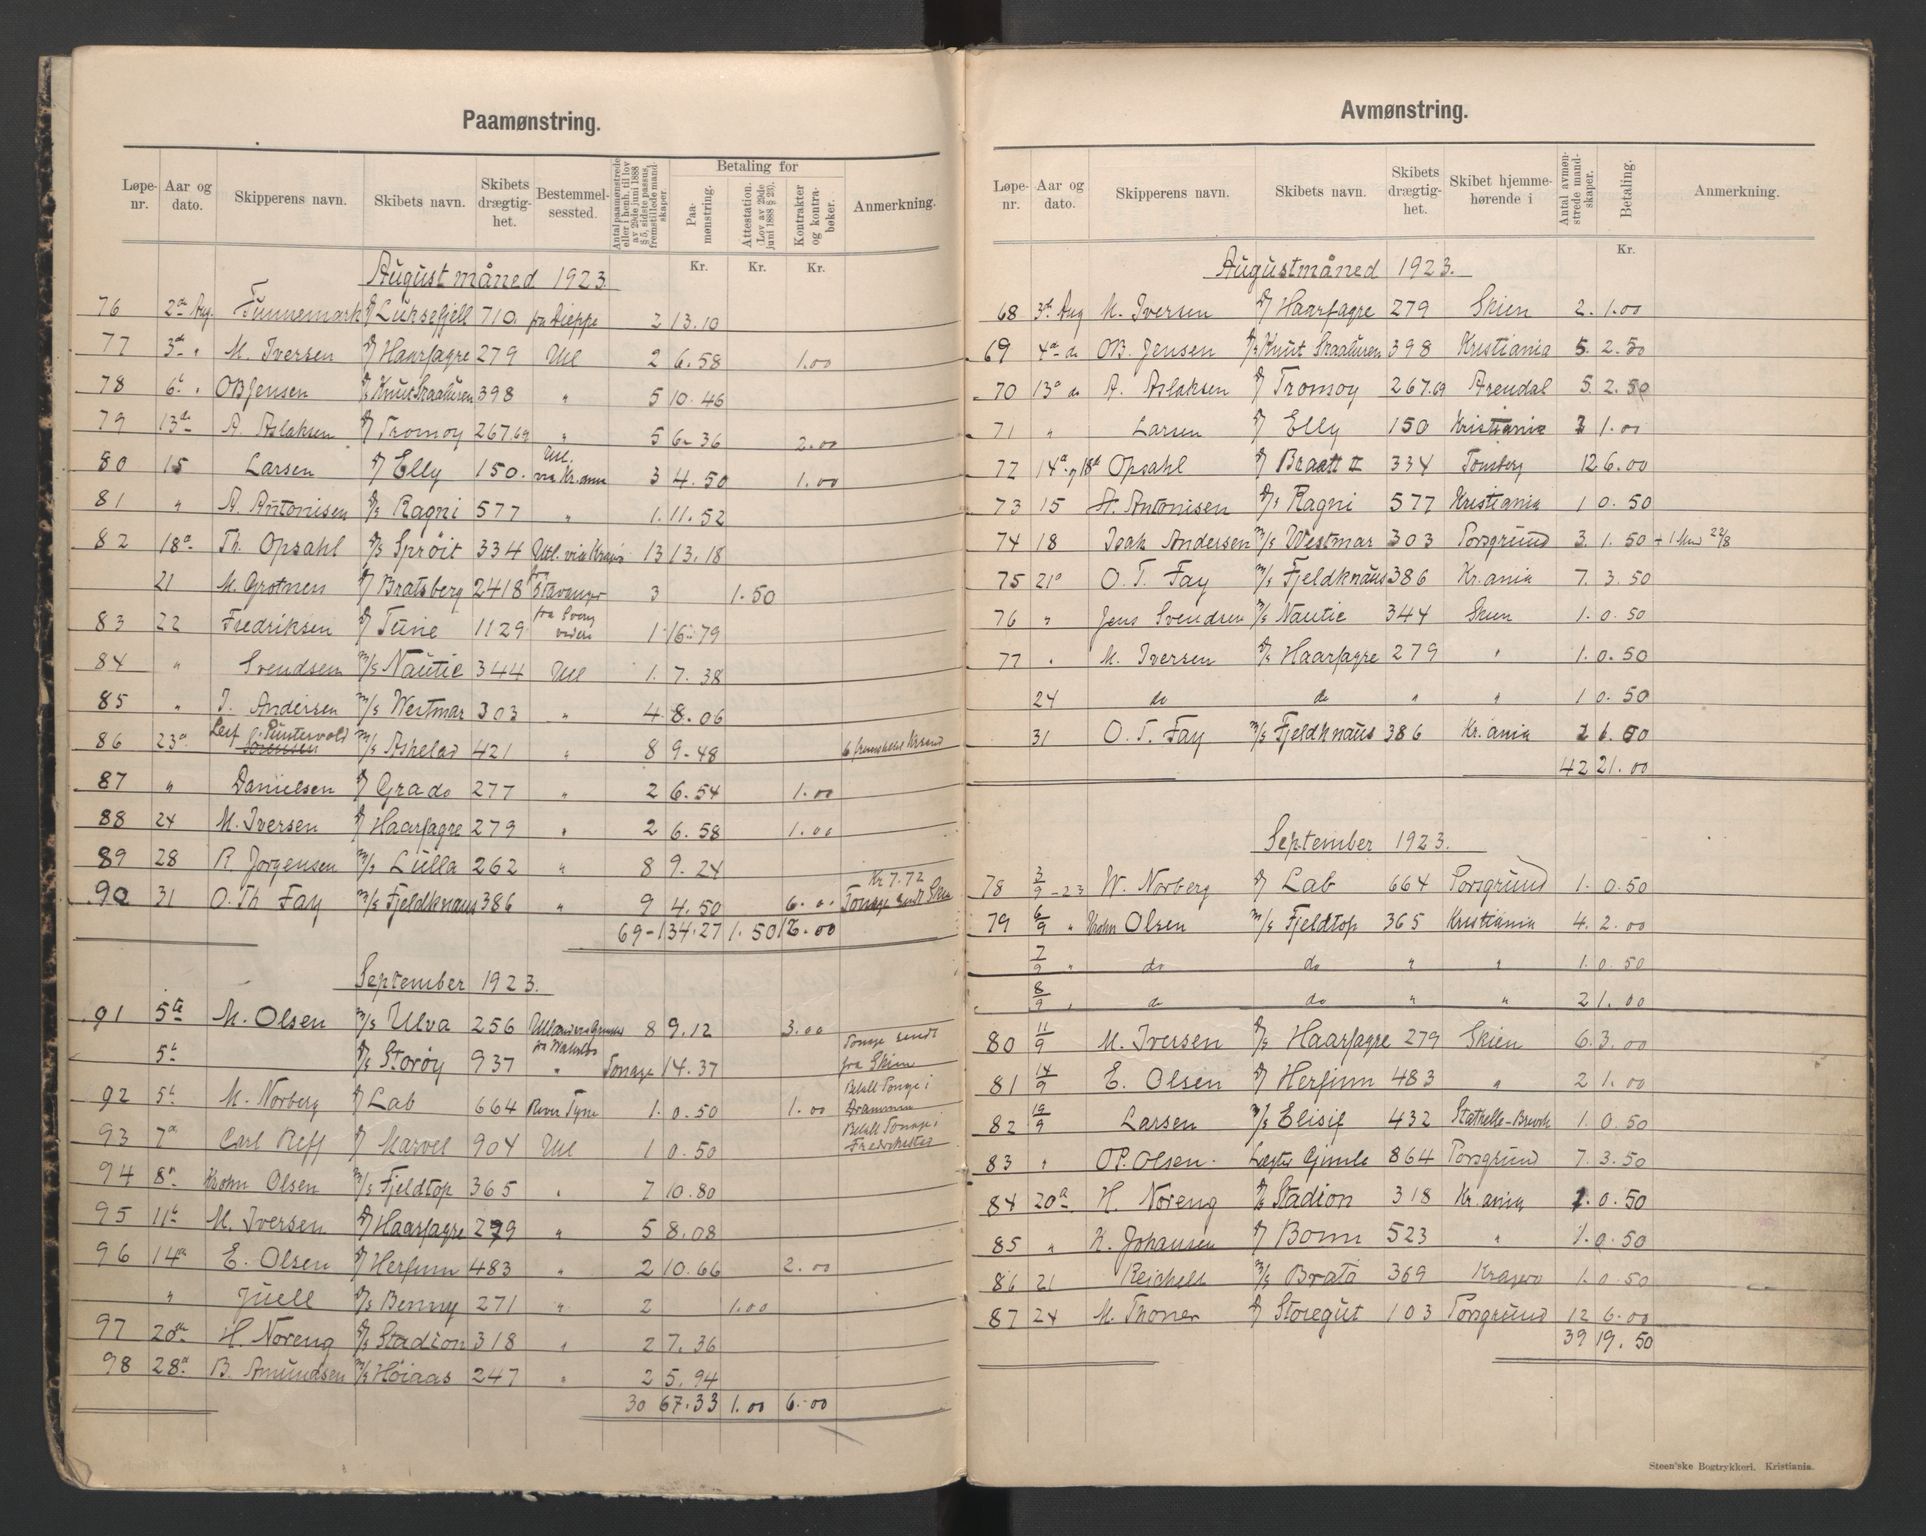 Paamønstring.
Løpe-nr. Aar og dato. Skipperens navn. Skibets navn. Skibets drægtighet. Bestemmelsessted. Antal paamønstrede eller i henh. til lov av 29de juni 1888 § 5, sidste passus, fremstillede mandskaper. Betaling for Paamønstring. Attestation. (Lov av 29de juni 1888 § 23). Kontrakter og kontrabøker. Anmerkning.
Kr. Kr. Kr.
August måned 1923
76 2den Aug. Tunnemark D/ Luksefjell 710. fra Dieppe 2 13.10
77 3de " M. Iversen D/ Haarfagre 279 Utl 2 6.58 1.00
78 6te " OB Jensen D/s Knut Skaaluren 398 " 5 10.46
79 13de A. Aslaksen D/ Tromøy 267.69 " 5 6-36 2.00
80 15 Larsen D/ Elly 150. Utl. via Kr.ania 3 4.50 1.00
81 " A. Antonisen D/s Ragni 577 " 1. 11.52
82 18de Th. Opsahl D/s Sprøit 334 Utl. via 13 13.18
21 M. Grotnen D/ Bratsberg 2418 fra Stavanger 3 1.50
83 22 Fredriksen D/ Tune 1129 fra Sverg videre 1 16.79
84 " Svendsen M/s Nautic 344 Utl 1. 7.38
85 " I. Andersen M/s Westmar 303 " 4 8.06
86 23de Leif Puntervold Sørensen M/s Askelad 421 " 8 9-48 6 fremstillet Krsand
87 " Danielsen D/ Grado 277 " 2 6.54 1.00
88 24 M. Iversen D/ Haarfagre 279 " 2 6.58 1.00
89 28 R. Jørgensen M/s Lulla 262 " 8 9-24
90 31 O. Th Fay M/s Fjeldknaus 386 " 9 4.50 6.00 Kr 7.72 Tonage sendt Skien
69 - 134.27 1.50 12.00
September 1923.
91 5te M. Olsen M/s Ulva 256 8 9.12 3.00
5te D/s Storøy 937 " Tonage 14.37 Tonage sendt fra Skien
92 5te M. Norberg D/ Lab 664 River Tyne 1. 0.50 1.00 Betalt Tonage i Drammen
93 7de Carl Reff D/ Marvel 904 Utl 1 0.50 Betalt Tonage i Fredrikstad
94 8de Krohn Olsen M/s Fjeldtop 365 " 7 10.80
95 11te M. Iversen D/ Haarfagre 279 " 5 8.08
96 14de E. Olsen D/ Herfinn 483 " 2 10.66 2.00
" Juell D/s Benny 271 " 2 1.00
97 20de H. Noreng D/s Stadion 318 " 2 7.36
98 28de B. Amundsen M/s Høiaas 247 " 2 5.94
30 67.33 1.00 6.00
Avmønstring.
Løpe-nr. Aar og dato. Skipperens navn. Skibets navn. Skibets drægtighet. Skibet hjemmehørende i Antal avmønstrede mandskaper. Betaling. Anmerkning.
Kr.
Augustmåned 1923.
68 3de Aug M. Iversen D/ Haarfagre 279 Skien 2. 1.00
69 4de do OB. Jensen D/s Knut Skaaluren 398 Kristiania 5. 2.50
70 13de do A. Aslaksen D/ Tromøy 267.69 Arendal 5. 2.50
71 " Larsen D/ Elly 150 Kristiania 1.00
72 14de og 18de Opsahl D/ Braatt II 334 Tønsberg 12 6.00
73 15 A. Antonisen D/s Ragni 577 Kristiania 1 0.50
74 18 Isak Andersen M/s Westmar 303 Porsgrund 3. 1.50 + 1 Man 22/8
75 21de O. T. Fay M/s Fjeldknaus 386 Kr.ania 7. 3.50
76 " Jens Svendsen M/s Nautic 344 Skien 1. 0.50
77 " M. Iversen D/s Haarfagre 279 " 1. 0.50
24 do do " " 1 0.50
31 O. T. Fay M/s Fjeldknaus 386 Kr.ania
42 21.00
September 1923.
78 3/9-23 W. Norberg D/ Lab 664 Porsgrund 1. 0.50
79 6/9 " Krohn Olsen M/s Fjeldtop 365 Kristiania 4. 2.00
7/9 " do do " " 1. 0.50
8/9 " do do " " 2 1.00
80 11/9 M. Iversen D/s Haarfagre 279 Skien 6. 3.00
81 14/9 E. Olsen D/ Herfinn 483 " 2 1.00
82 19/9 Larsen M/s Elisif 432 Stathelle-Brevik 1. 0.50
83 " OP. Olsen. Lægter Gimle 864 Porsgrund 7. 3.50
84 20de H. Noreng D/s Stadion 318 Kr.ania 1. 0.50
85 " K. Johansen D/ Bonn 523 " 1. 0.50
86 21 Reichelt M/s Bratø 369 Kragerø 1. 0.50
87 24 M. Thoner D/ Storegut 103 Porsgrund 12 6.00
39 19.50
Steen'ske Bogtrykkeri. Kristiania.